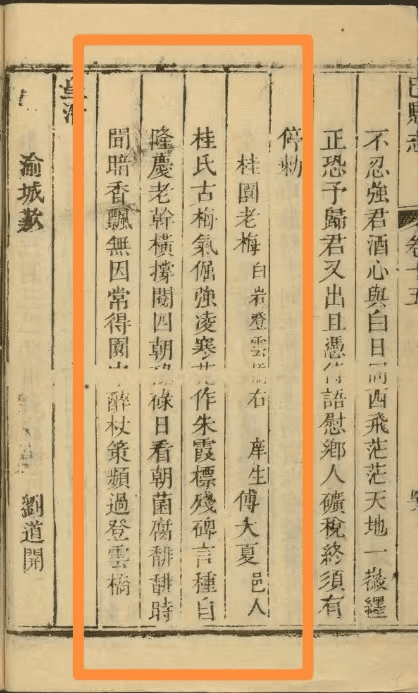 巴縣志 卷十五
不忍強君酒心與白日同西飛茫茫天地一徽纆
正恐予歸君又出且憑語慰鄉人礦稅終須有
停勅
桂園老梅 白岩登雲橋右 庠生傅大夏邑人
桂氏古梅氣倔強凌寒花作朱霞標殘碑言種自
隆慶老幹橫撐閱四朝碌日看朝菌腐馡馡時
聞暗香飄無因常得園中醉杖策頻過登雲橋
渝城歎 劉道開